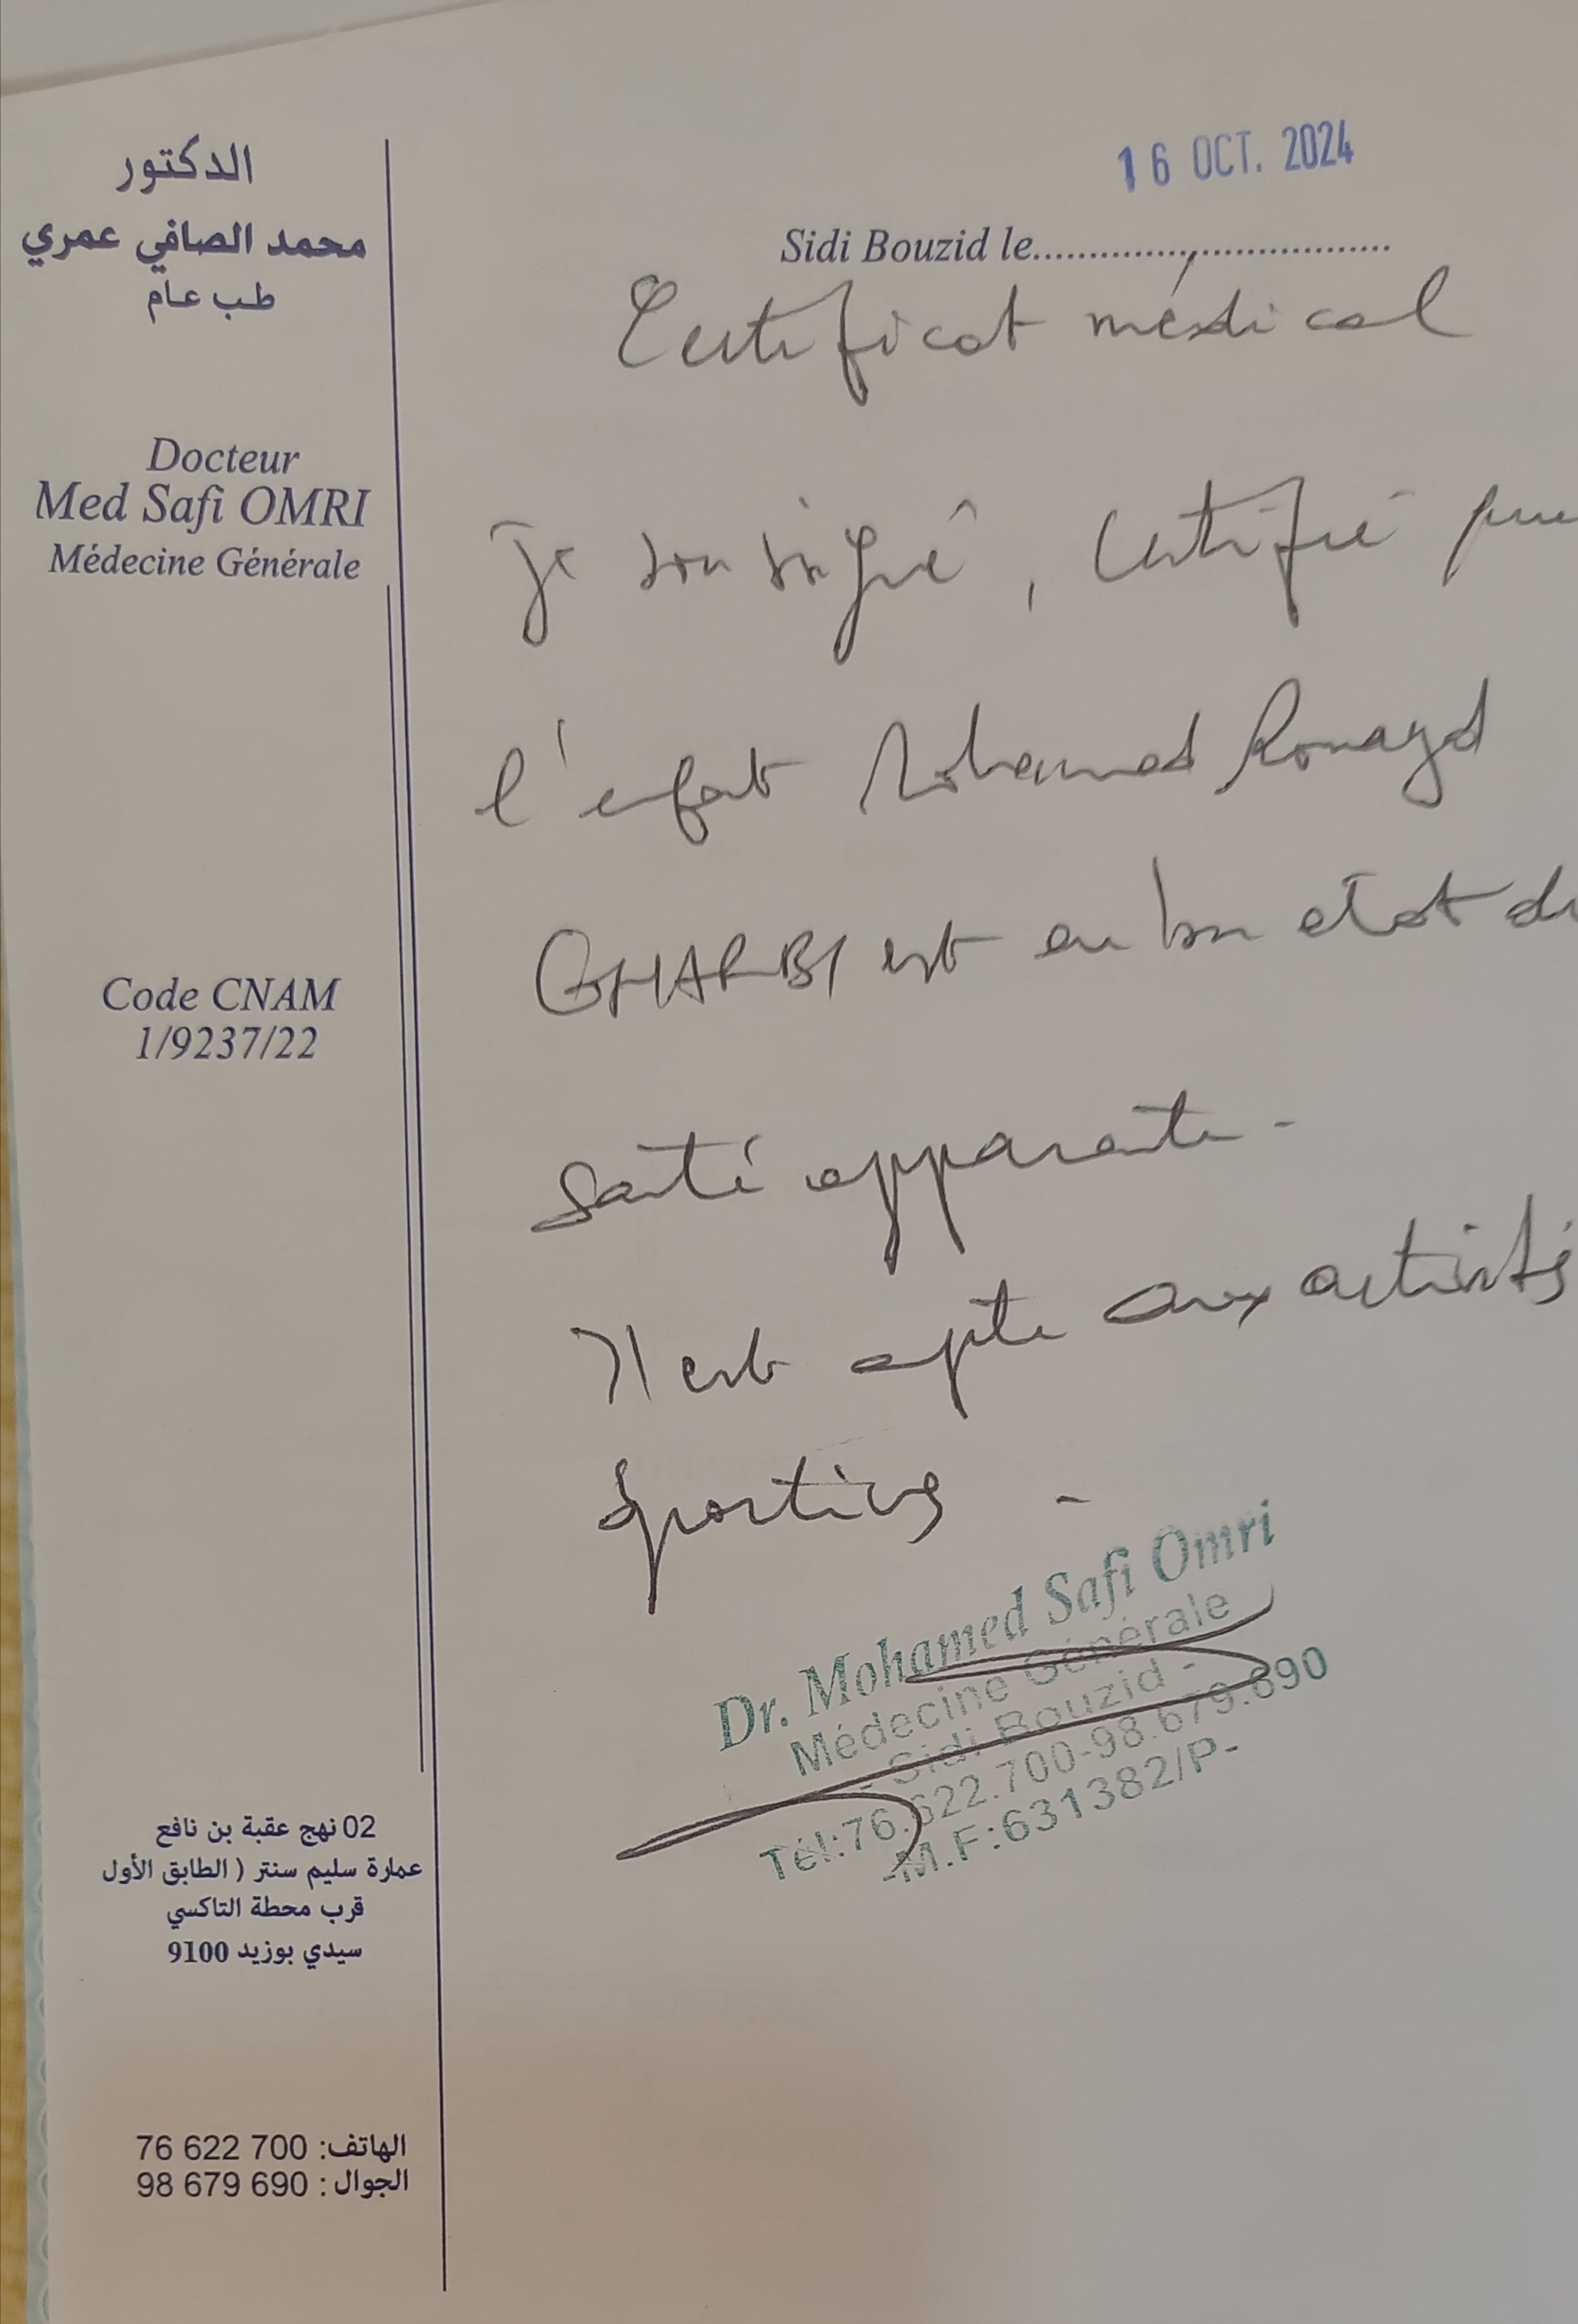 الدكتور
محمد الصافي عمري
طب عام
Docteur
Med Safi OMRI
Médecine Générale
Code CNAM
1/9237/22
02 نهج عقبة بن نافع
عمارة سليم سنتر ( الطابق الأول
قرب محطة التاكسي
سيدي بوزيد 9100
الهاتف: 76 622 700
الجوال : 98 679 690
16 OCT. 2024
Sidi Bouzid le
Certificat médical
Je soussigné, certifié que
l'enfat Mohamed Rouayd
GHARBI est en bon etat de
Santé apparente -
Il est apte aux activités
Sportives -
Dr. Mohamed Safi Omri
Médecine Générale
- Sidi Bouzid -
Tél:76.622.700-98.679.690
-M.F:631382/P-